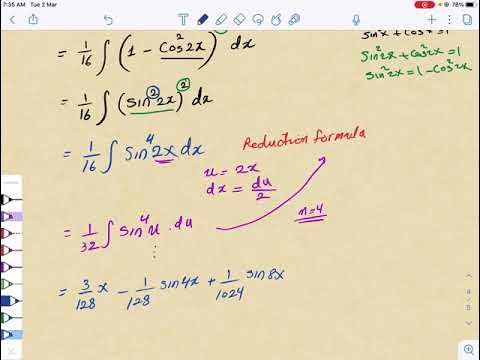 7:35 AM Tue 2 Mar
78%
sin²x + cos²x = 1
= 1/16 ∫ (1 - cos²2x)² dx
sin²2x + cos²2x = 1
sin²2x = 1 - cos²2x
= 1/16 ∫ (sin²2x)² dx
= 1/16 ∫ sin⁴2x dx
Reduction formula
u = 2x
dx = du/2
n=4
= 1/32 ∫ sin⁴u . du
⋮
= 3/128 x - 1/128 sin4x + 1/1024 sin8x
4 / 5